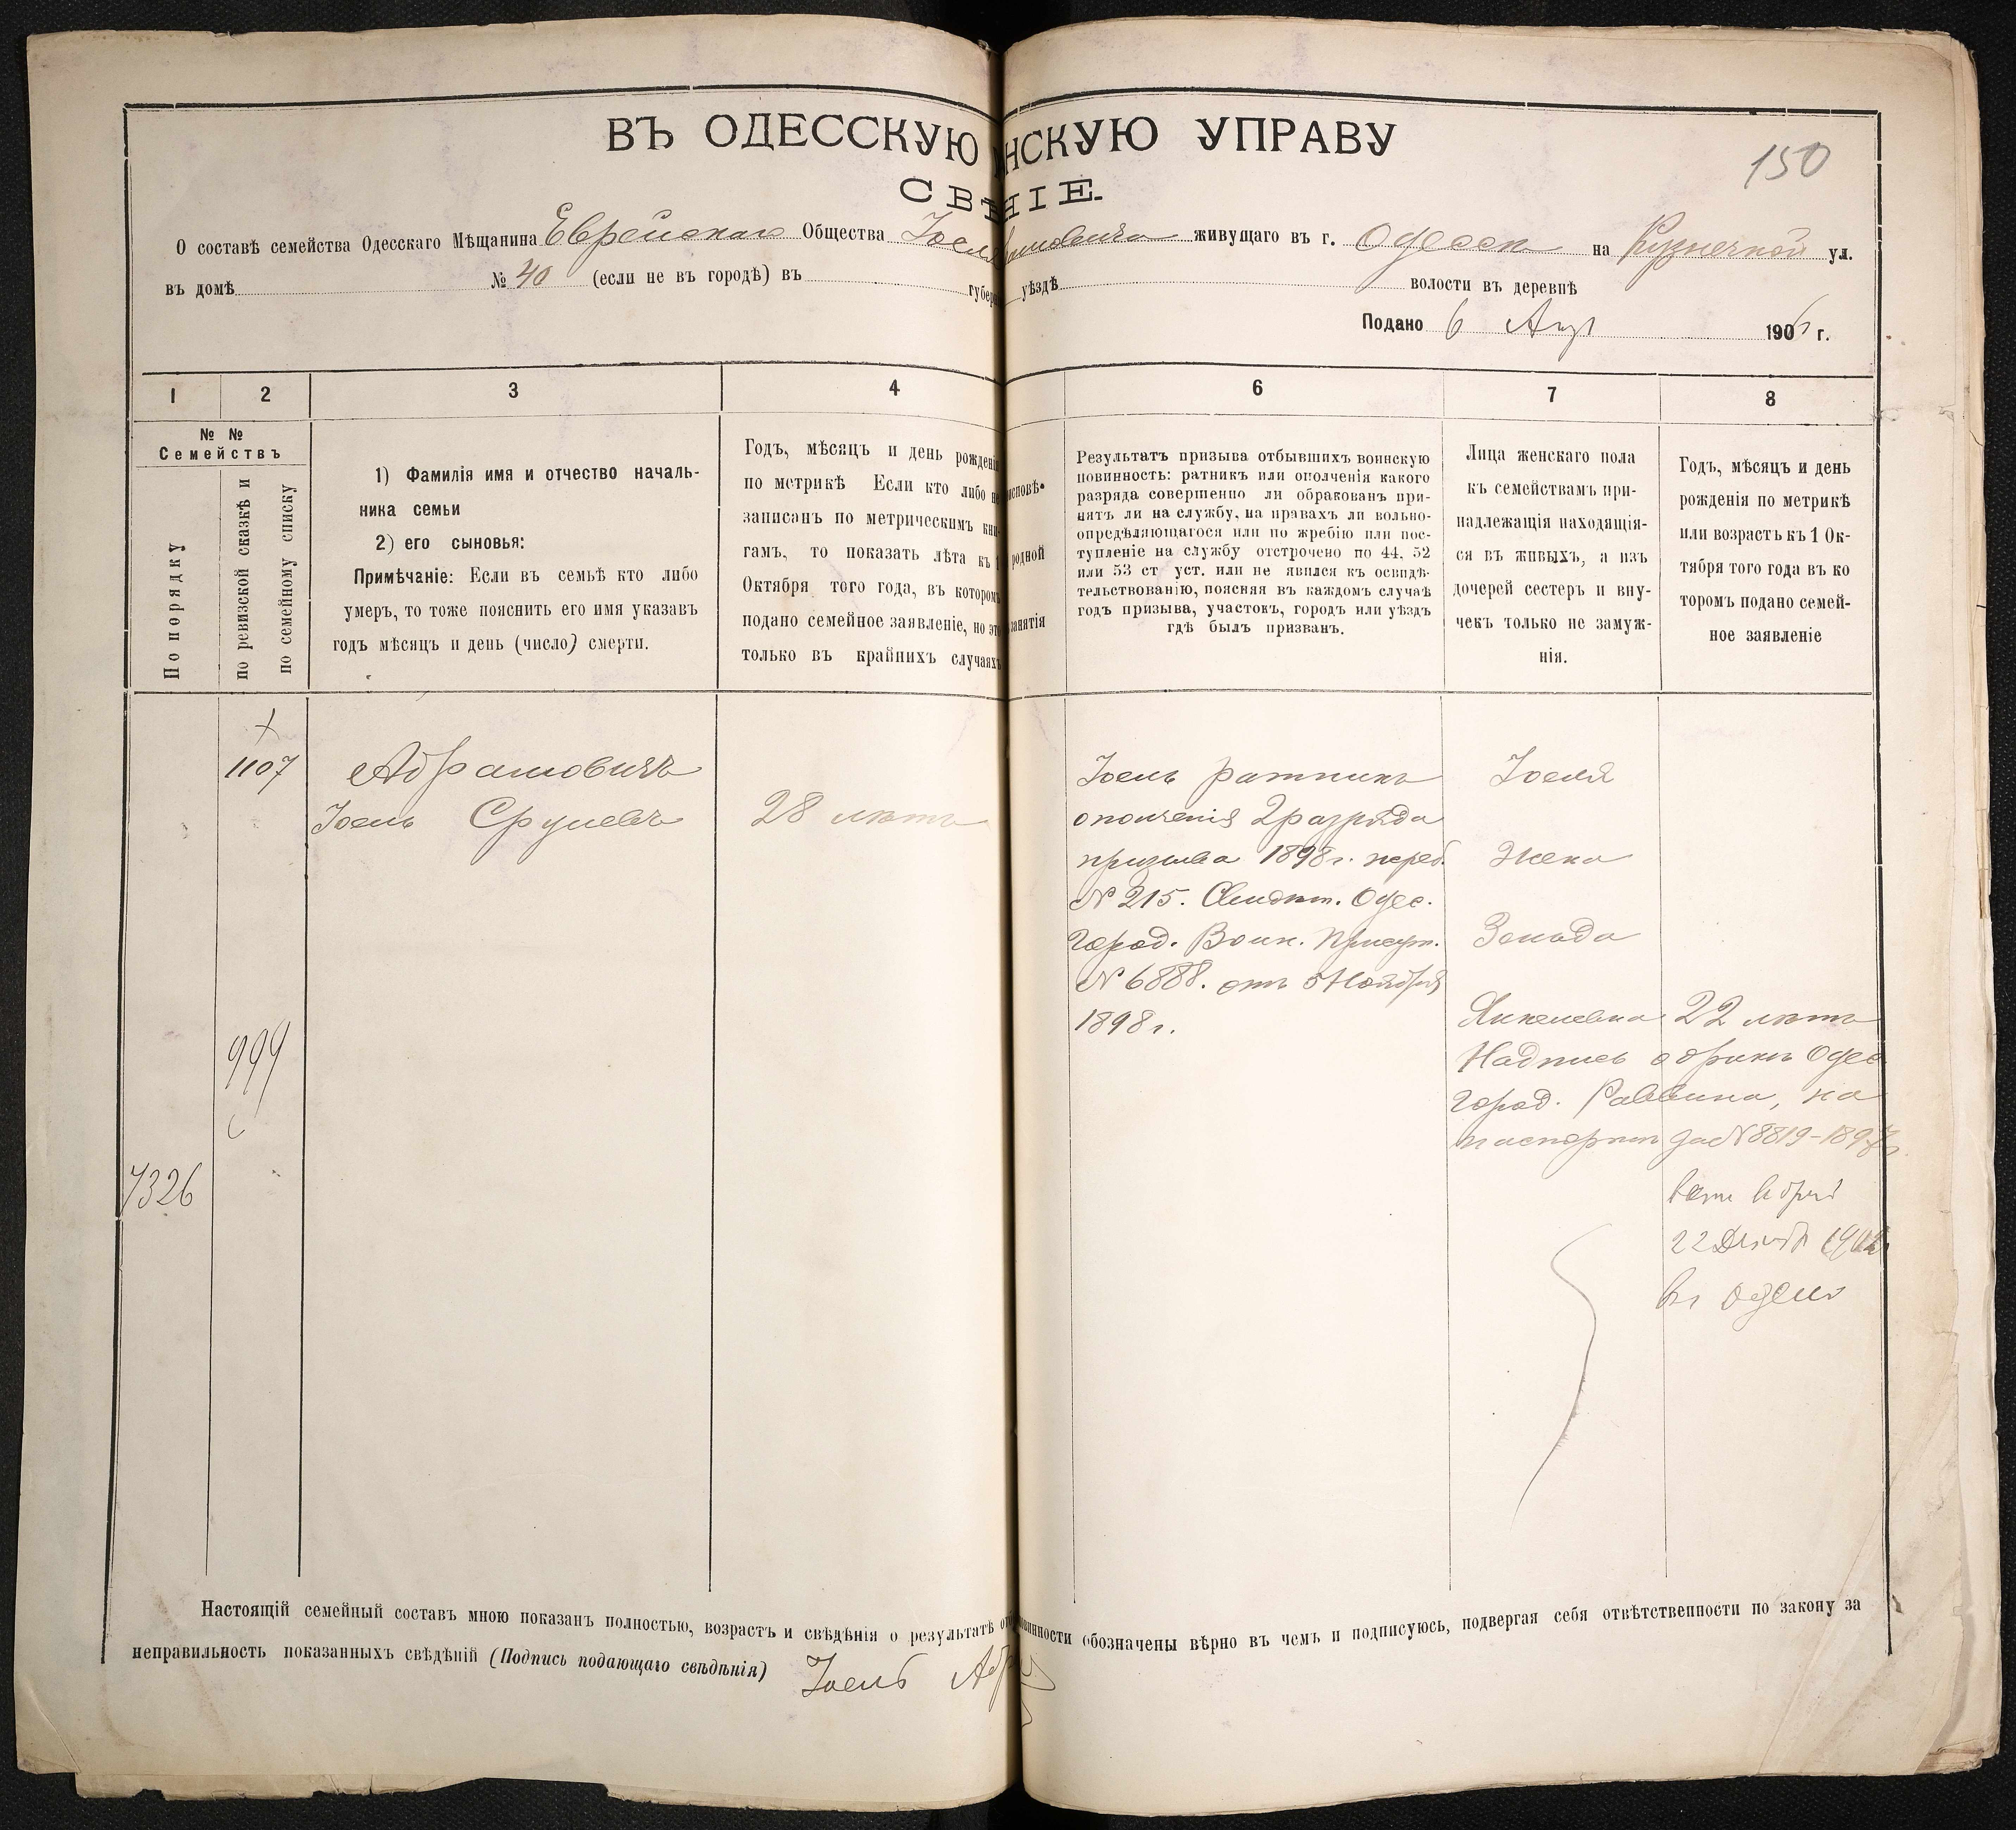 150
ВЪ ОДЕССКУЮ НСКУЮ УПРАВУ
СВѢНІЕ.
О составѣ семейства Одесскаго Мѣщанина Еврейскаго Общества Іоеля живущаго въ г. Одессѣ на Кузнечной ул.
въ домѣ № 40 (если не въ городѣ) въ губер уѣздѣ волости въ деревнѣ
Подано 6 190 г.
1 2 3 4 6 7 8
№ №
Семействъ
По порядку
по ревизской сказкѣ и
по семейному списку
1) Фамилія имя и отчество началь-
ника семьи
2) его сыновья:
Примѣчаніе: Если въ семьѣ кто либо
умеръ, то тоже пояснить его имя указавъ
годъ мѣсяцъ и день (число) смерти.
Годъ, мѣсяцъ и день рожденія
по метрикѣ Если кто либо не
записанъ по метрическимъ кни-
гамъ, то показать лѣта къ 1
Октября того года, въ которомъ
подано семейное заявленіе, но это
только въ крайнихъ случаяхъ
исповѣ-
родной
занятія
Результатъ призыва отбывшихъ воинскую
повинность: ратникъ или ополченія какого
разряда совершенно ли обракованъ при-
нятъ ли на службу, на правахъ ли вольно-
опредѣляющагося или по жребію или пос-
тупленіе на службу отстрочено по 44, 52
или 53 ст уст. или не явился къ освидѣ-
тельствованію, поясняя въ каждомъ случаѣ
годъ призыва, участокъ, городъ или уѣздъ
гдѣ былъ призванъ.
Лица женскаго пола
къ семействамъ при-
надлежащія находящія-
ся въ живыхъ, а изъ
дочерей сестеръ и вну-
чекъ только не замуж-
нія.
Годъ, мѣсяцъ и день
рожденія по метрикѣ
или возрастъ къ 1 Ок-
тября того года въ ко
торомъ подано семей-
ное заявленіе
1107
Абрамовичъ
Іоель Срулевъ
28 лѣтъ
Іоель ратникъ
ополченія 2 разряда
призыва 1898 г. жереб.
N 215. Свидѣт. Одес.
Город. Воин. Присут.
N 6888. отъ 5 Ноября
1898 г.
Іоеля
Жена
Зельда
Янкелевна 22 лѣтъ
Надпись о бракѣ Одес
Город. Раввина, на
паспортѣ за N 8819-1897
22 Декаб
въ Одессѣ
999
7326
Настоящій семейный составъ мною показанъ полностью, возрастъ и свѣдѣнія о результатѣ отб повинности обозначены вѣрно въ чемъ и подписуюсь, подвергая себя отвѣтственности по закону за
неправильность показанныхъ свѣдѣній (Подпись подающаго свѣдѣнія) Іоель Абр